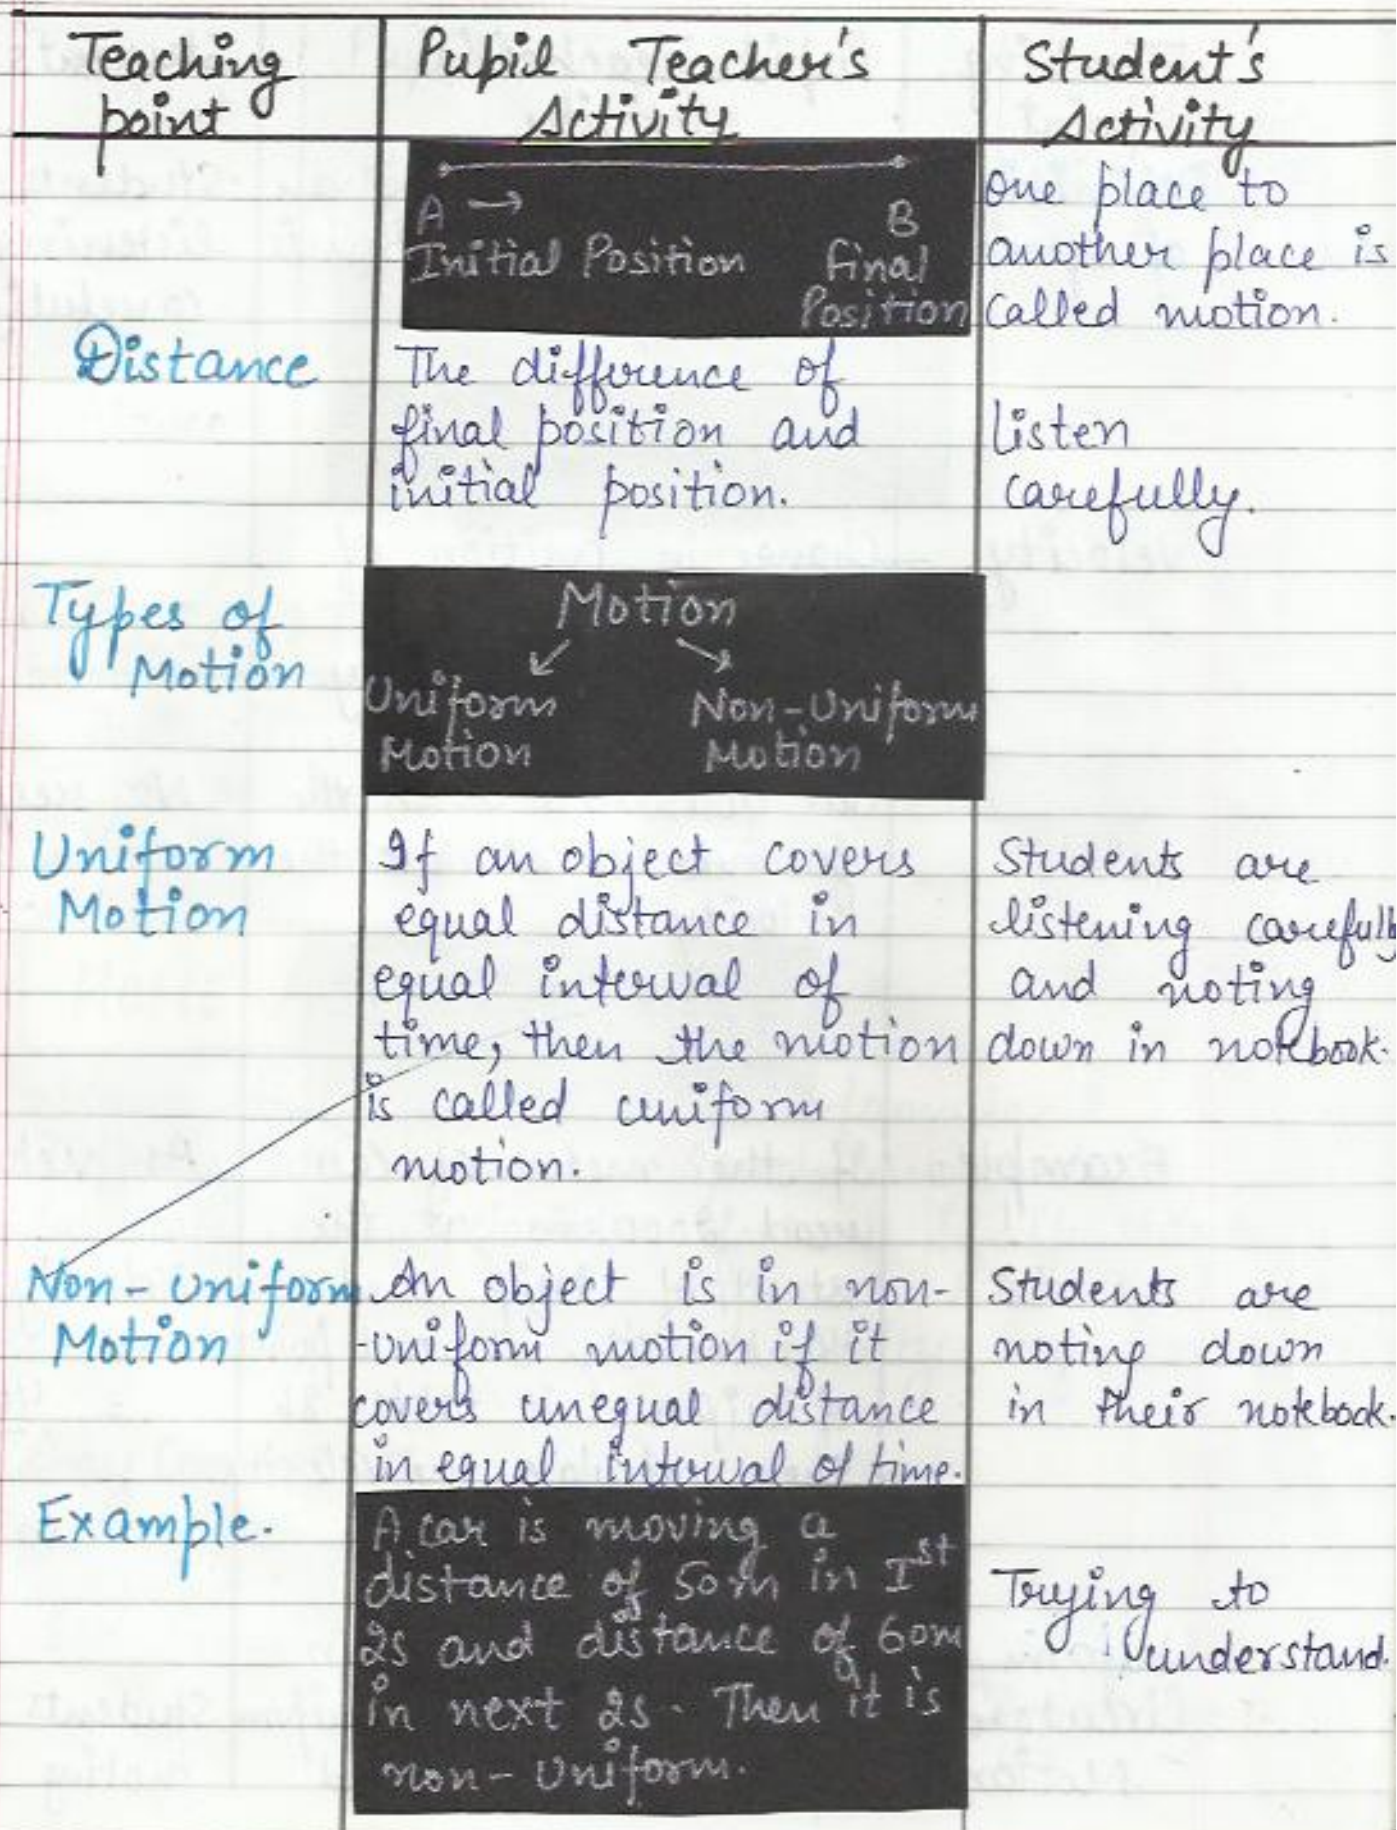 Teaching point
Pupil Teacher's Activity
Student's Activity
A → B
Initial Position Final Position
one place to
another place is
called motion.
Distance
The difference of
final position and
initial position.
listen
carefully.
Types of
Motion
Motion
Uniform Motion
Non-Uniform Motion
Uniform
Motion
If an object covers
equal distance in
equal interval of
time, then the motion
is called uniform
motion.
Students are
listening carefully
and noting
down in notebook.
Non-Uniform
Motion
An object is in non-
-uniform motion if it
covers unequal distance
in equal interval of time.
Students are
noting down
in their notebook.
Example.
A car is moving a
distance of 50m in Ist
2s and distance of 60m
in next 2s. Then it is
non-Uniform.
Trying to
understand.